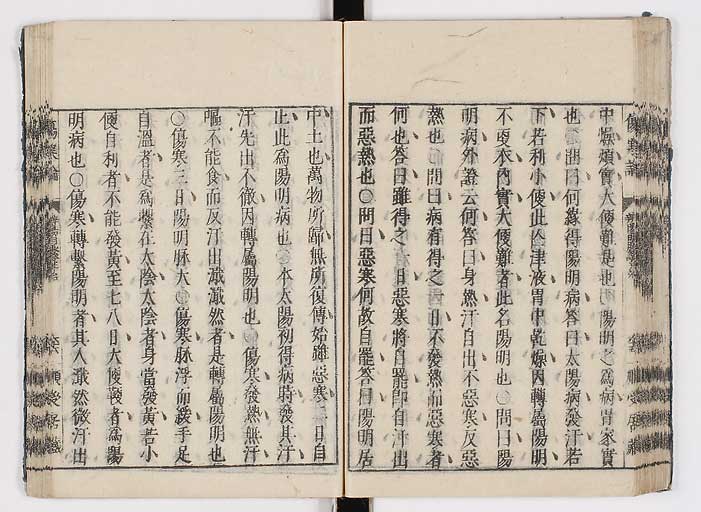 中燥煩實大便難是也○陽明之爲病胃家實
也○問曰何緣得陽明病答曰太陽病發汗若
下若利小便此亾津液胃中乾燥因轉屬陽明
不更衣內實大便難者此名陽明也○問曰陽
明病外證云何答曰身熱汗自出不惡寒反惡
熱也○問曰病有得之一日不發熱而惡寒者
何也答曰雖得之一日惡寒將自罷卽自汗出
而惡熱也○問曰惡寒何故自罷答曰陽明居
中土也萬物所歸無所復傳始雖惡寒二日自
止此爲陽明病也○本太陽初得病時發其汗
汗先出不徹因轉屬陽明也○傷寒發熱無汗
嘔不能食而反汗出濈濈然者是轉屬陽明也
○傷寒三日陽明脉大○傷寒脉浮而緩手足
自溫者是爲繫在太陰太陰者身當發黃若小
便自利者不能發黃至七八日大便鞕者爲陽
明病也○傷寒轉繫陽明者其人濈然微汗出
傷寒論